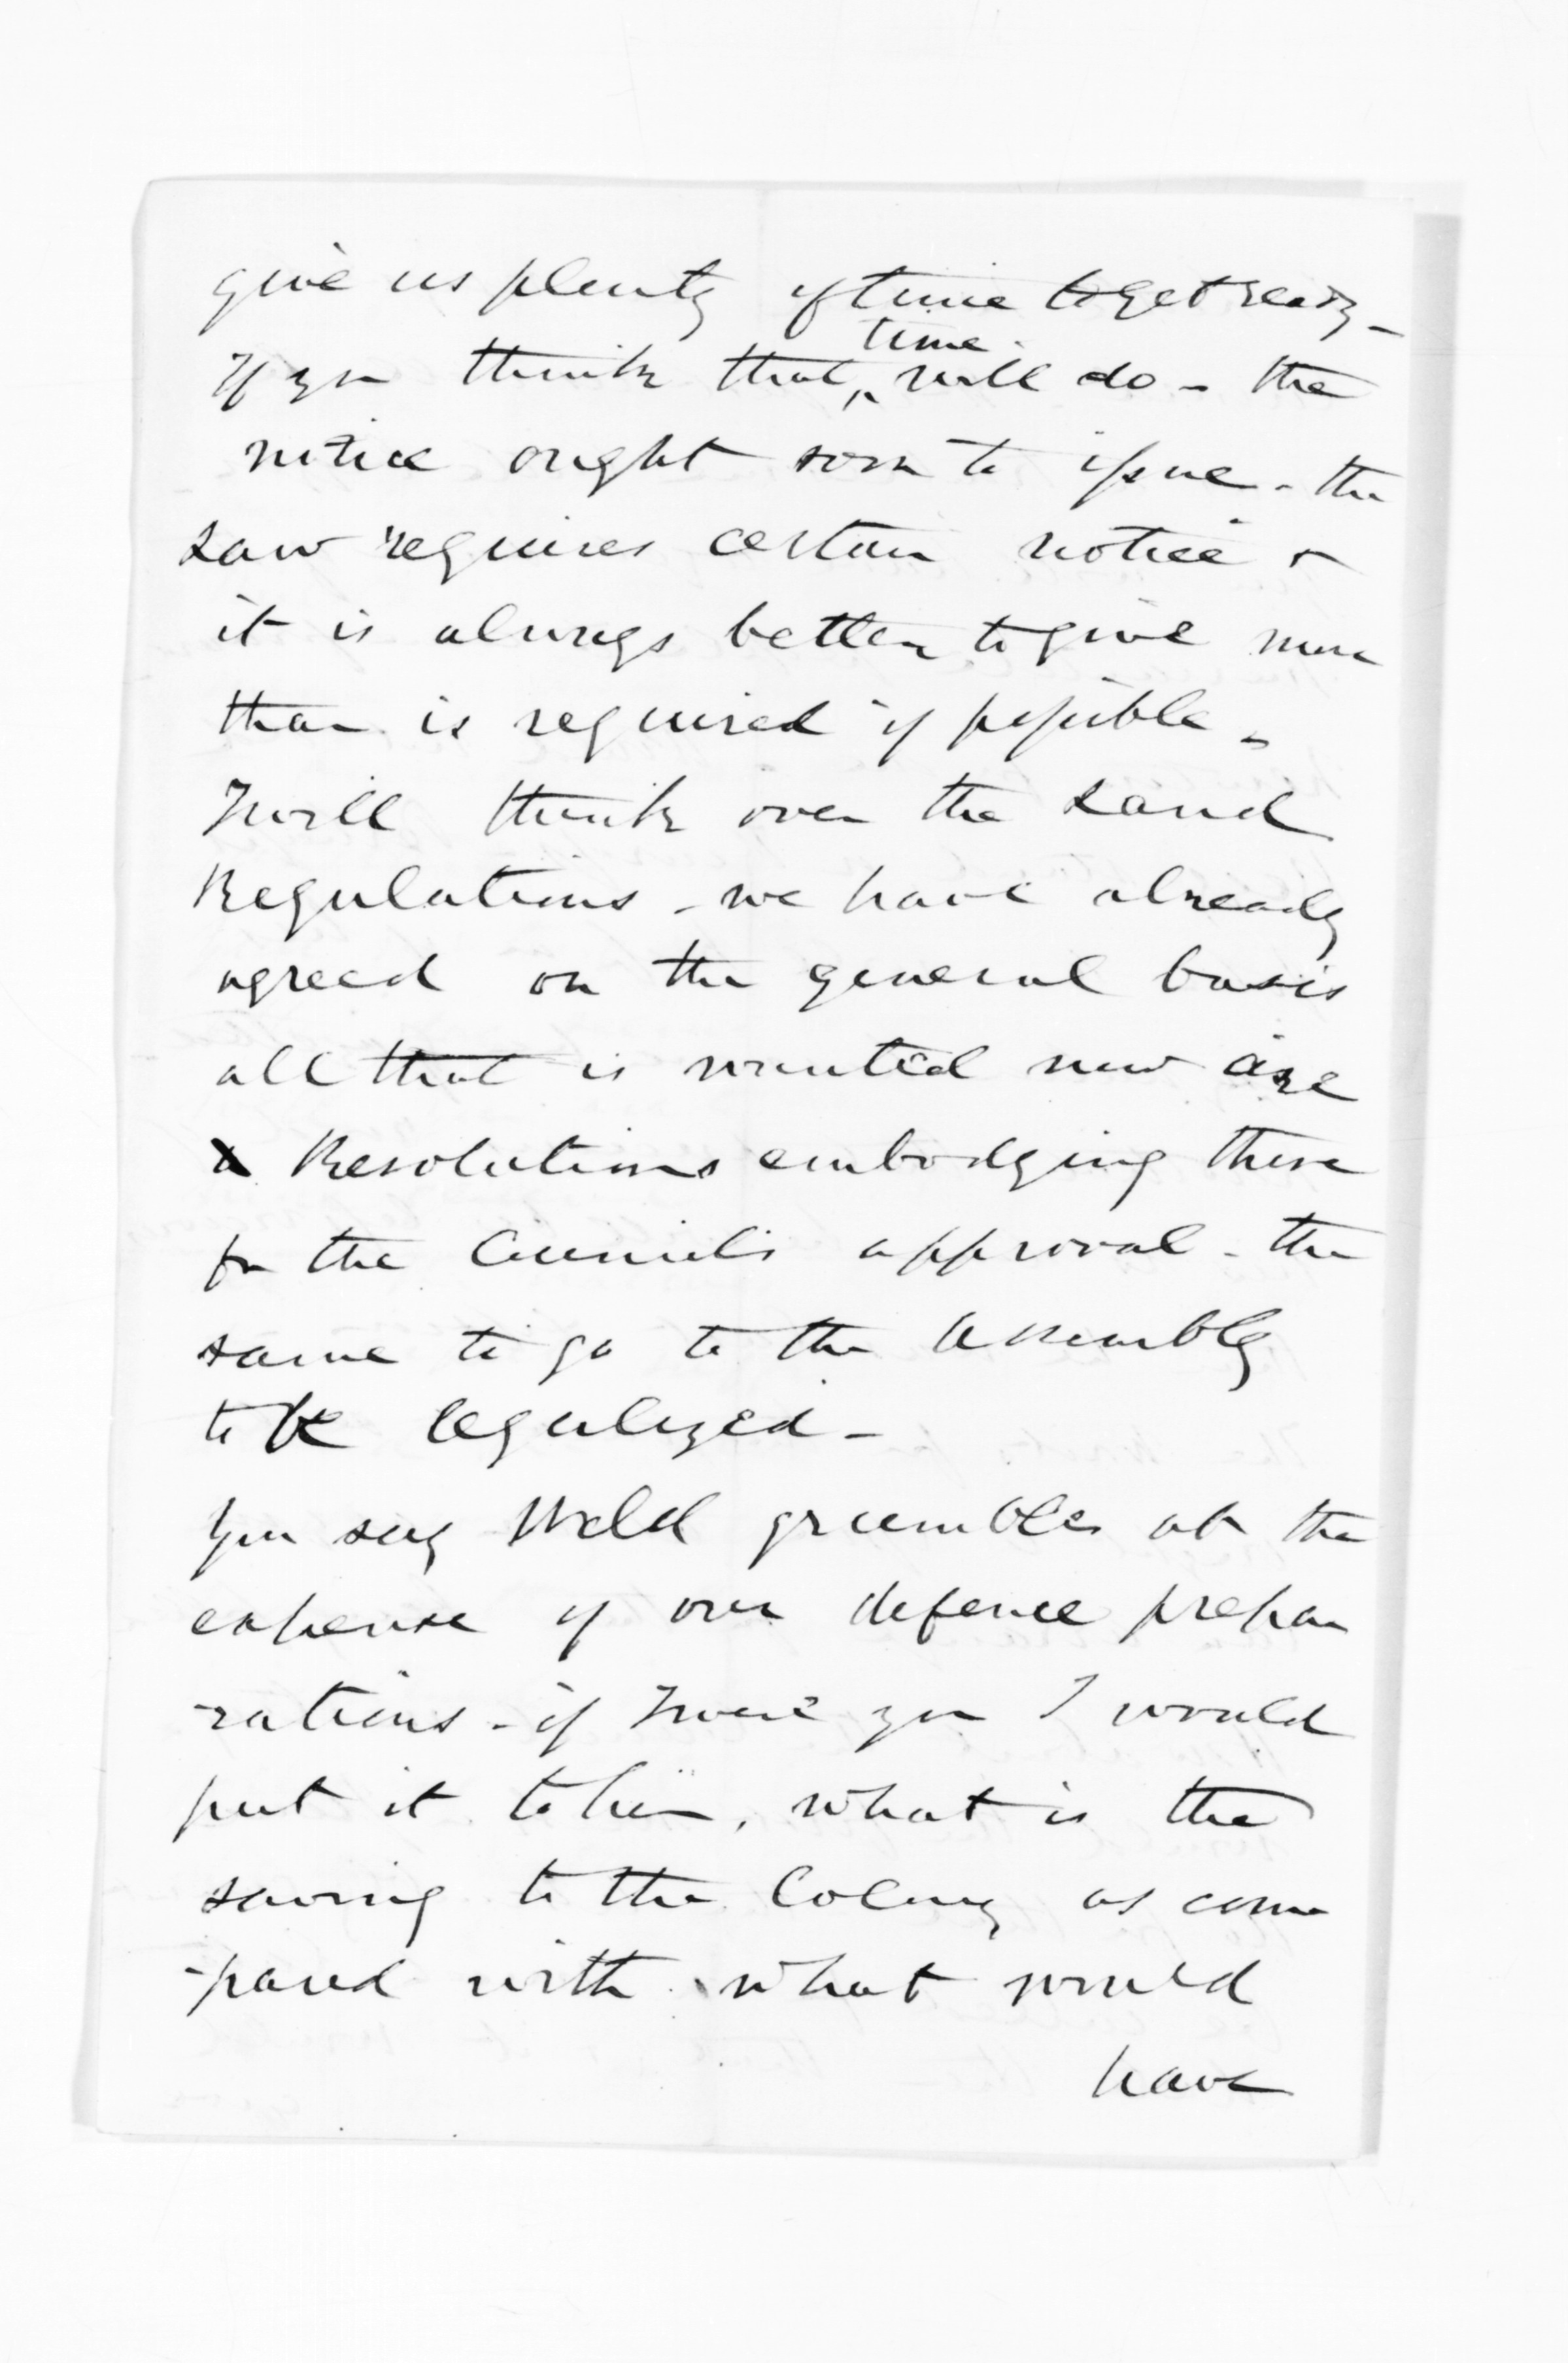 give us plenty of time to get ready -
If you think that time will do - the
notice ought soon to issue - the
Law requires certain notice &
it is always better to give more
than is required if possible -
I will think over the Land
Regulations - we have already
agreed on the general basis
all that is wanted now are
Resolutions embodying these
for the Councils approval - the
same to go to the Assembly
to be legalized -
You say Weld grumbles at the
expense of our defence prepa
-rations - if I were you I would
put it to him, what is the
saving to the Colony as com
-pared with what would
have